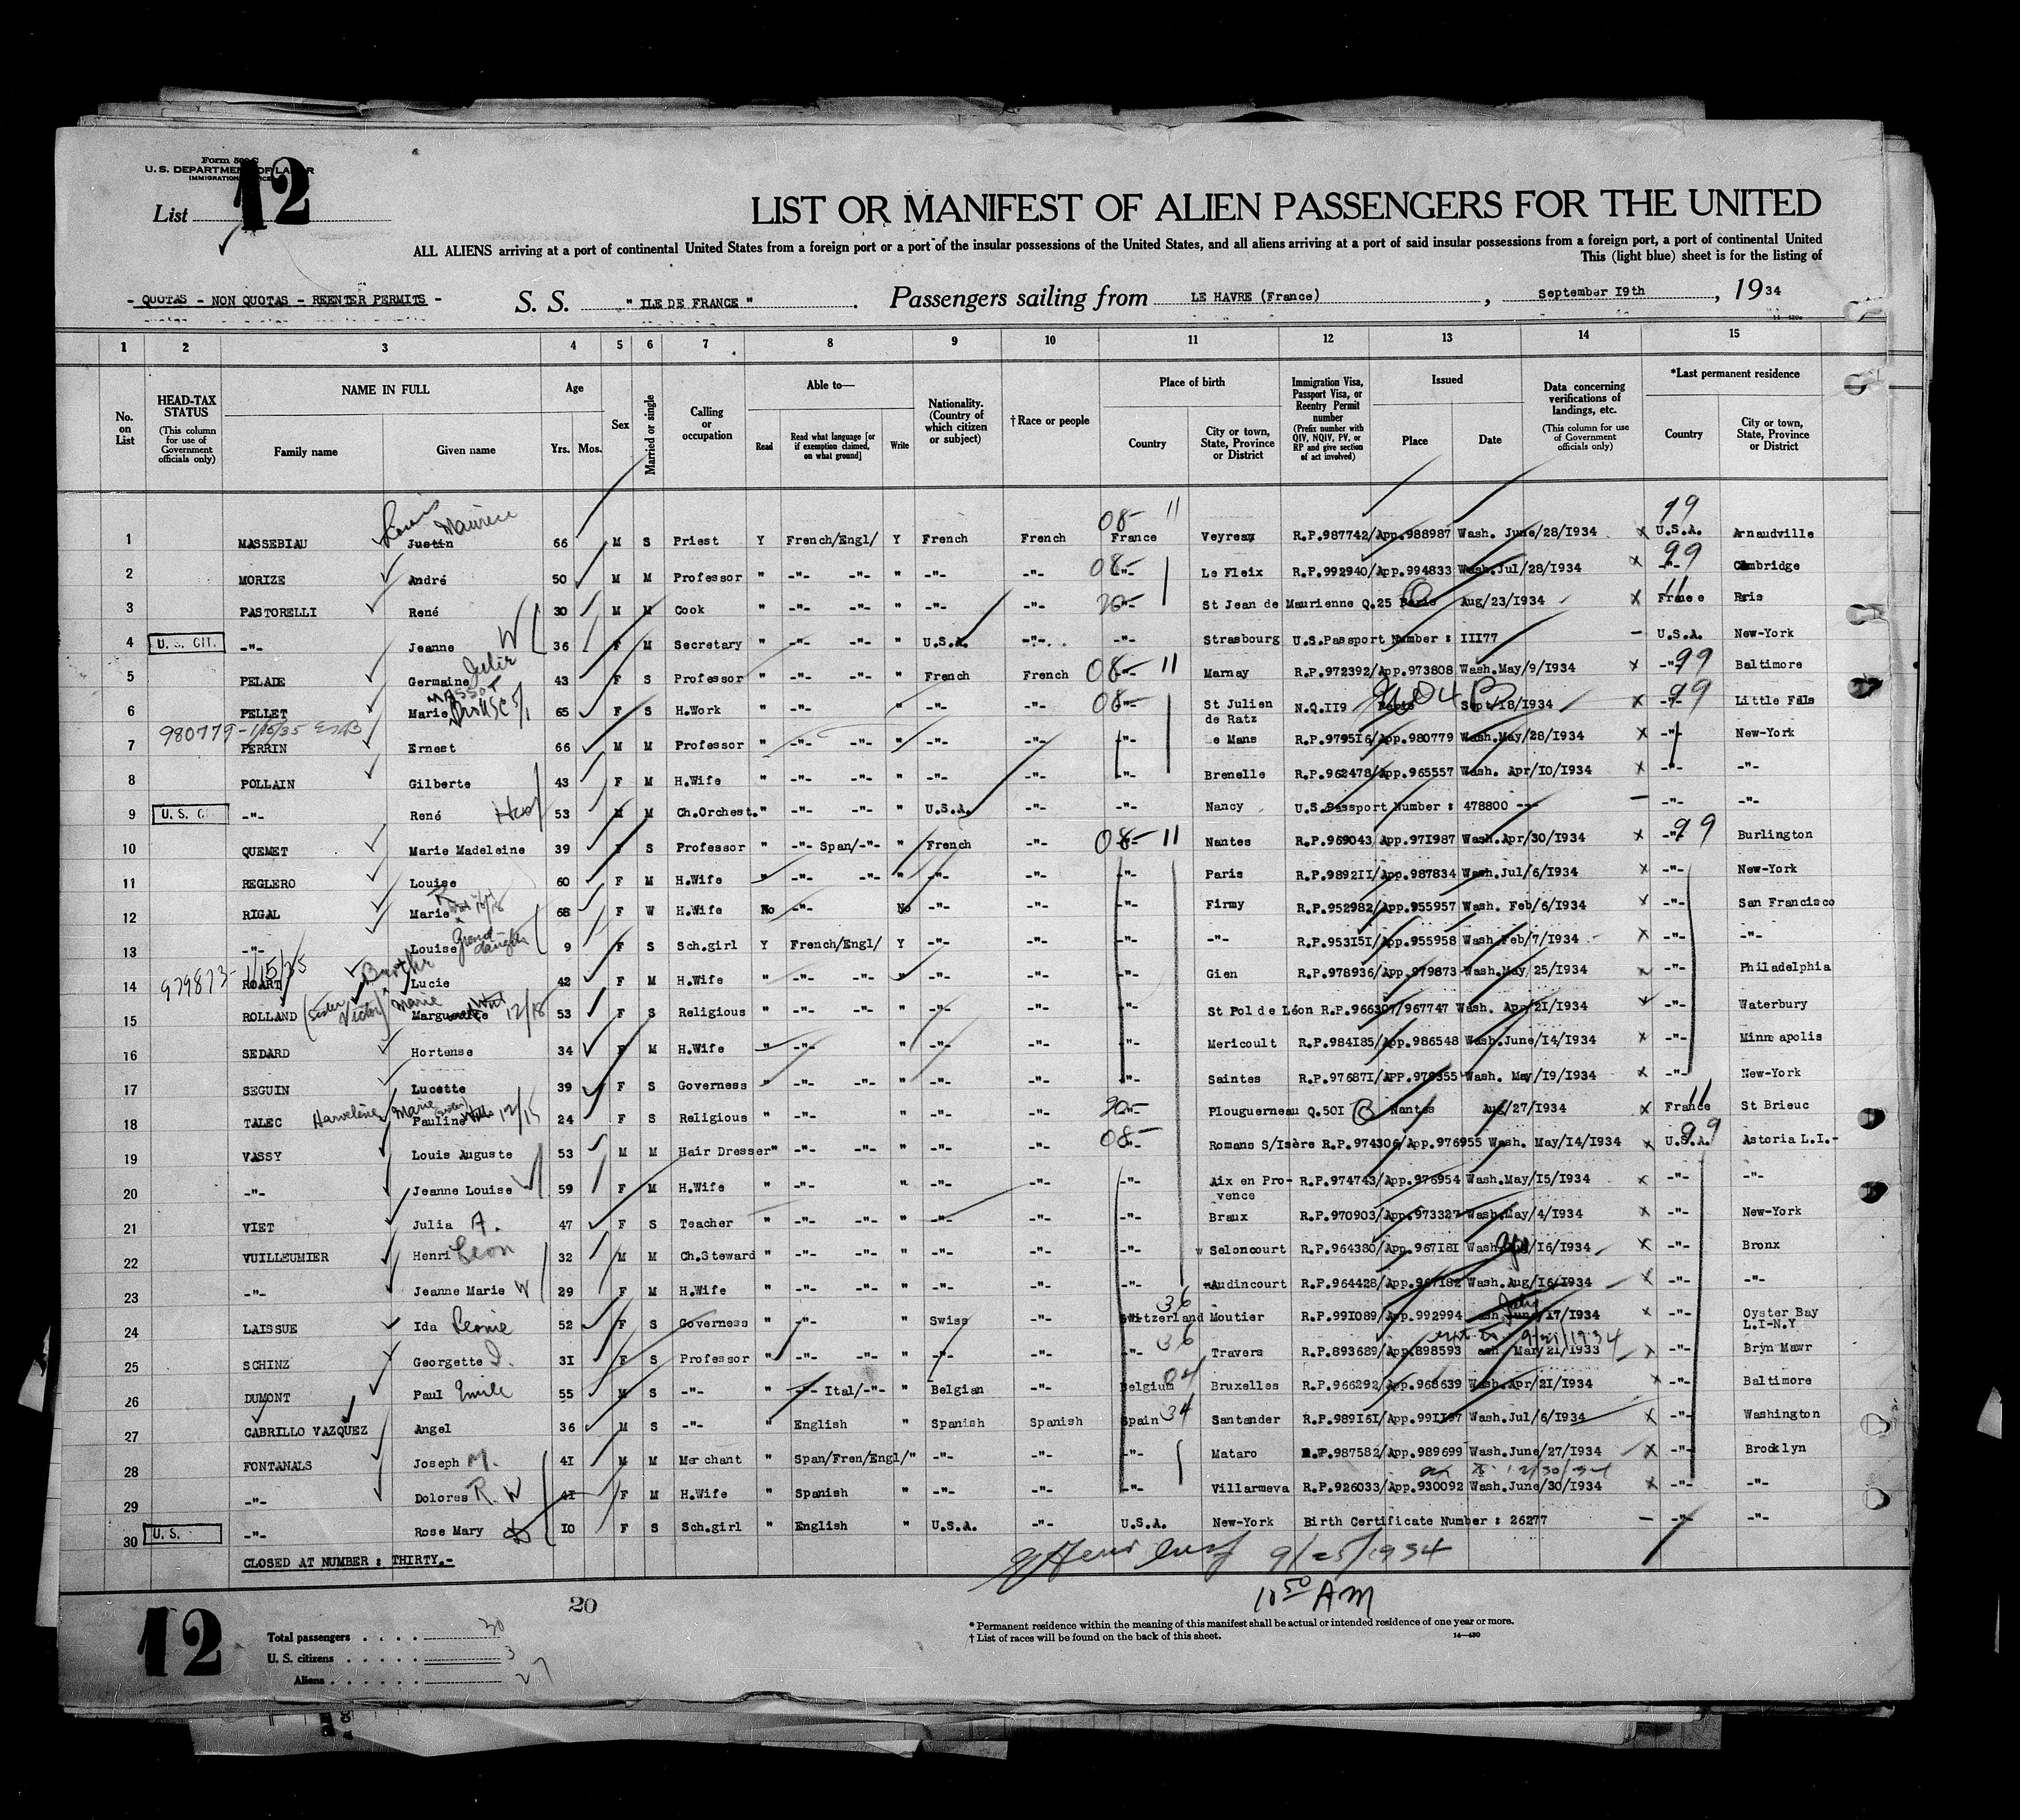 Form 500 C
U. S. DEPARTMENT OF LABOR
IMMIGRATION SERVICE
List 12
LIST OR MANIFEST OF ALIEN PASSENGERS FOR THE UNITED
ALL ALIENS arriving at a port of continental United States from a foreign port or a port of the insular possessions of the United States, and all aliens arriving at a port of said insular possessions from a foreign port, a port of continental United
This (light blue) sheet is for the listing of
- QUOTAS - NON QUOTAS - REENTER PERMITS - S. S. " ILE DE FRANCE " . Passengers sailing from LE HAVRE (France) , September I9th , 1934
1 2 3 4 5 6 7 8 9 10 11 12 13 14 15
No. on List
HEAD-TAX STATUS (This column for use of Government officials only)
NAME IN FULL Family name Given name
Age Yrs. Mos.
Sex
Married or single
Calling or occupation
Able to— Read Read what language [or if exemption claimed, on what ground] Write
Nationality. (Country of which citizen or subject)
†Race or people
Place of birth Country City or town, State, Province or District
Immigration Visa, Passport Visa, or Reentry Permit number (Prefix number with QIV, NQIV, PV, or RP and give section of act involved)
Issued Place Date
Data concerning verifications of landings, etc. (This column for use of Government officials only)
*Last permanent residence Country City or town, State, Province or District
1 MASSEBIAU Justin Louis Maurice 66 M S Priest Y French/Engl/ Y French French 08- 11 France Veyreau R.P.987742/App.988987 Wash. June/28/I934 x 99 U.S.A. Arnaudville
2 MORIZE André 50 M M Professor " -"- -"- " -"- -"- 08- -"- Le Fleix R.P.992940/App.994833 Wash.Jul/28/I934 x 99 -"- Cambridge
3 PASTORELLI René 30 M M Cook " -"- -"- " -"- -"- -"- St Jean de Maurienne Q.25 Paris Aug/23/I934 x 11 France Paris
4 U. S. CIT. -"- Jeanne W 36 F M Secretary " -"- -"- " U.S.A. -"- -"- Strasbourg U.S.Passport Number : III77 — U.S.A. New-York
5 PELADE Germaine Julie 43 F S Professor " -"- -"- " French French 08- 11 Marnay R.P.972392/App.973808 Wash.May/9/I934 x -"- 99 Baltimore
6 PELLET Marie MASSOT 65 F S H.Work " -"- -"- " -"- -"- 08- -"- St Julien de Ratz N.Q.II9 Paris Sept/I8/I934 x -"- 99 Little Falls
980779
7 PERRIN Ernest 66 M M Professor " -"- -"- " -"- -"- -"- Le Mans R.P.9795I6/App.980779 Wash.May/28/I934 x -"- New-York
8 POLLAIN Gilberte 43 F M H.Wife " -"- -"- " -"- -"- -"- Brenelle R.P.962478/App.965557 Wash. Apr/I0/I934 x -"- -"-
9 U. S. C -"- René 53 M M Ch.Orchest. " -"- -"- " U.S.A. -"- -"- Nancy U.S.Passport Number : 478800 --- — -"- -"-
10 QUEMET Marie Madeleine 39 F S Professor " -"- Span/-"- " French -"- 08- 11 Nantes R.P.969043/App.97I987 Wash.Apr/30/I934 x -"- 99 Burlington
11 REGLERO Louise 60 F M H.Wife " -"- -"- " -"- -"- -"- Paris R.P.9892II/App.987834 Wash.Jul/6/I934 x -"- New-York
12 RIGAL Marie 68 F W H.Wife No -"- No -"- -"- -"- Firmy R.P.952982/App.955957 Wash. Feb/6/I934 x -"- San Francisco
13 -"- Louise grand-daughter 9 F S Sch.girl Y French/Engl/ Y -"- -"- -"- -"- R.P.953I5I/App.955958 Wash.Feb/7/I934 x -"- -"-
979873-1/15/35
14 ROART Lucie Berthe 42 F M H.Wife " -"- -"- " -"- -"- -"- Gien R.P.978936/App.979873 Wash.May 25/I934 x -"- Philadelphia
15 ROLLAND (Sister Victor) Marie Marguerite 12/18 53 F S Religious " -"- -"- " -"- -"- -"- St Pol de Léon R.P.966307/967747 Wash. Apr/2I/I934 x -"- Waterbury
16 SEDARD Hortense 34 F M H.Wife " -"- " -"- -"- -"- Mericoult R.P.984I85/App.986548 Wash.June/I4/I934 x -"- Minneapolis
17 SEGUIN Lucette 39 F S Governess " -"- -"- " -"- -"- -"- Saintes R.P.97687I/APP.979355 Wash. May/I9/I934 x -"- New-York
18 TALEC Marie Pauline 24 F S Religious " -"- -"- " -"- -"- -"- Plouguerneau Q.50I Nantes Aug/27/I934 x 11 France St Brieuc
19 VASSY Louis Auguste 53 M M Hair Dresser " -"- -"- " -"- -"- 08- -"- Romans S/Isère R.P.974306/App.976955 Wash. May/I4/I934 x 99 U.S.A. Astoria L.I.-
20 -"- Jeanne Louise W 59 F M H.Wife " -"- -"- " -"- -"- -"- Aix en Provence R.P.974743/App.976954 Wash.May/I5/I934 x -"- -"-
21 VIET Julia A. 47 F S Teacher " -"- -"- " -"- -"- -"- Braux R.P.970903/App.973327 Wash.May/4/I934 x -"- New-York
22 VUILLEUMIER Henri Leon 32 M M Ch.Steward " -"- -"- " -"- -"- -"- Seloncourt R.P.964380/App.967I8I Wash. /I6/I934 x -"- Bronx
23 -"- Jeanne Marie W 29 F M H.Wife " -"- -"- " -"- -"- -"- Audincourt R.P.964428/App.967I82 Wash.Aug/I6/I934 x -"- -"-
24 LAISSUE Ida Leonie 52 F S Governess " -"- -"- " Swiss -"- 36 Switzerland Moutier R.P.99I089/App.992994 Wash. July June/I7/I934 x -"- Oyster Bay L.I-N.Y
25 SCHINZ Georgette 3I F S Professor " -"- -"- " -"- -"- 36 -"- Travers R.P.893689/App.898593 Wash. Mar/2I/I933 x -"- Bryn Mawr
26 DUMONT Paul Emile 55 M S -"- " -"- Ital/-"- " Belgian -"- 04 Belgium Bruxelles R.P.966292/App.968639 Wash.Apr/2I/I934 x -"- Baltimore
27 CABRILLO VAZQUEZ Angel 36 M S -"- " English " Spanish Spanish Spain 34 Santander R.P.989I6I/App.99II97 Wash.Jul/6/I934 x -"- Washington
28 FONTANALS Joseph M. 4I M M Merchant " Span/Fren/Engl/ " -"- -"- -"- Mataro R.P.987582/App.989699 Wash.June/27/I934 x -"- Brooklyn
29 -"- Dolores R. W 4I F M H.Wife " Spanish " -"- -"- -"- Villarmeva R.P.926033/App.930092 Wash.June/30/I934 x -"- -"-
30 U. S. -"- Rose Mary I0 F S Sch.girl " English " U.S.A. -"- U.S.A. New-York Birth Certificate Number : 26277 — -"- -"-
CLOSED AT NUMBER : THIRTY.-
9/25/1934
10 50 AM
20
12
Total passengers . . . . 30
U. S. citizens . . . . . 3
Aliens . . . . . . 27
* Permanent residence within the meaning of this manifest shall be actual or intended residence of one year or more.
† List of races will be found on the back of this sheet. 14—430